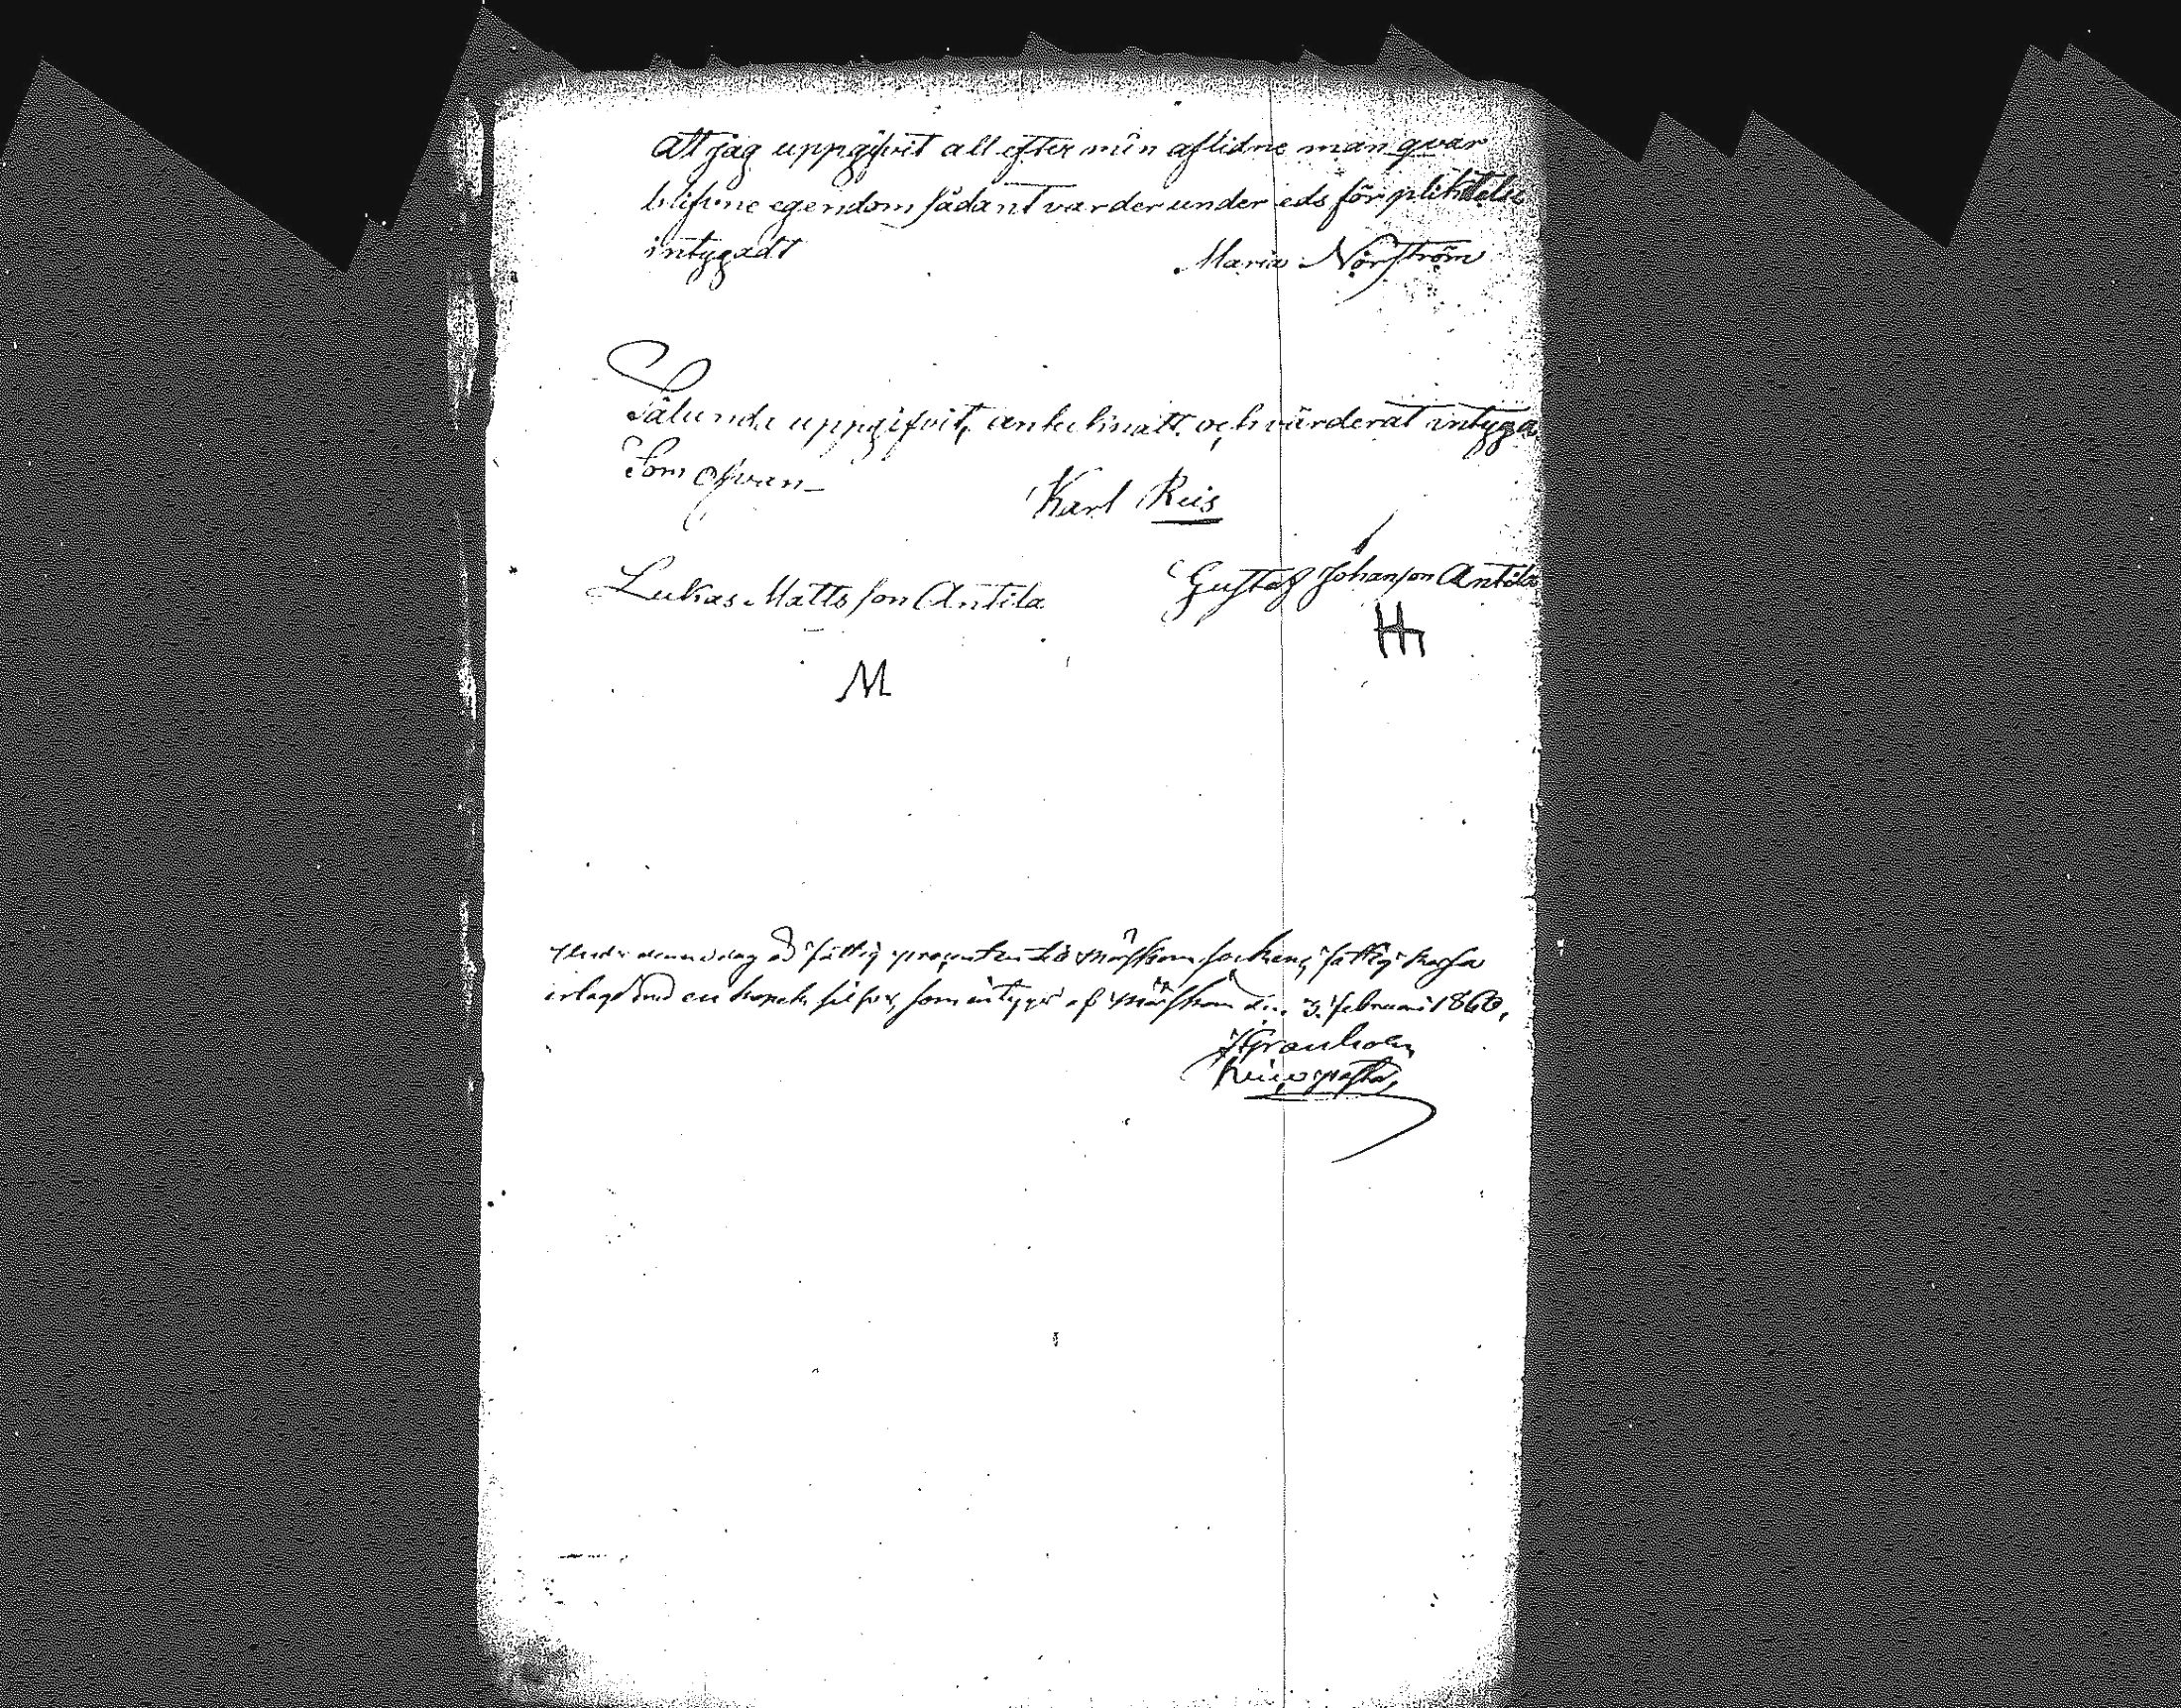 Att jag uppgifvit all efter min aflidne man qvar
blifvne egendom sådant varder under eds förpliktelse
intygadt Maria Norström
Sålunda uppgifvit, antecknatt och värderat intyga
Som ofvan
Karl Reis
Lukas Mattsson Antila Gustaf Johanson Antila
M
denna dag fattig procenten till sockens fattig kassa
erlagd med en kopek silfver, som intygas af den 3. februari 1860,
Granholm